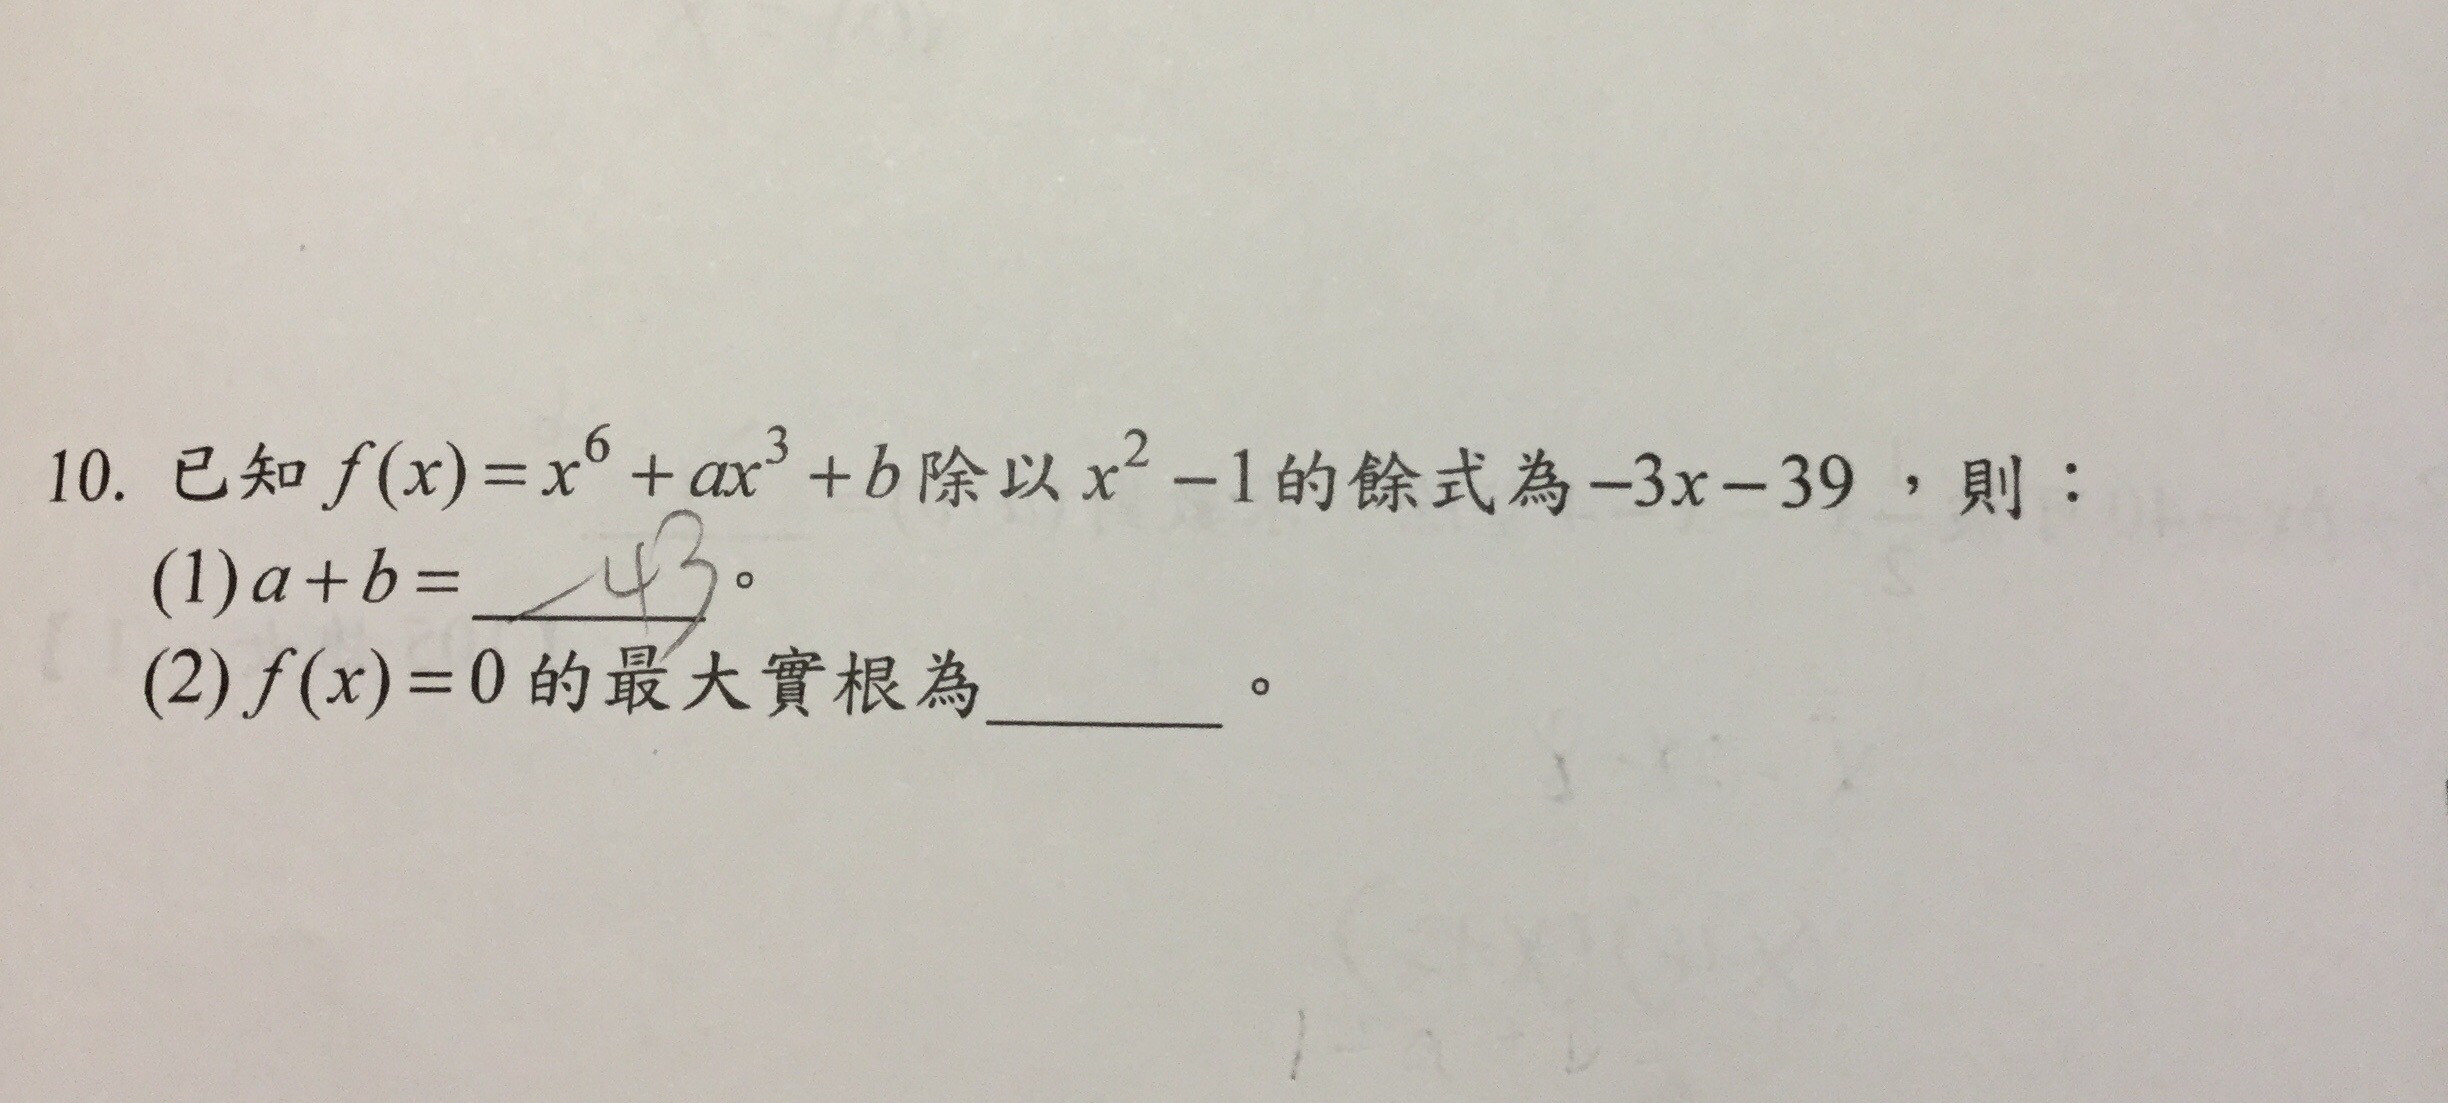 10. 已知 f(x)=x⁶+ax³+b除以x²-1的餘式為-3x-39，則：
(1)a+b= -43。
(2)f(x)=0 的最大實根為______。